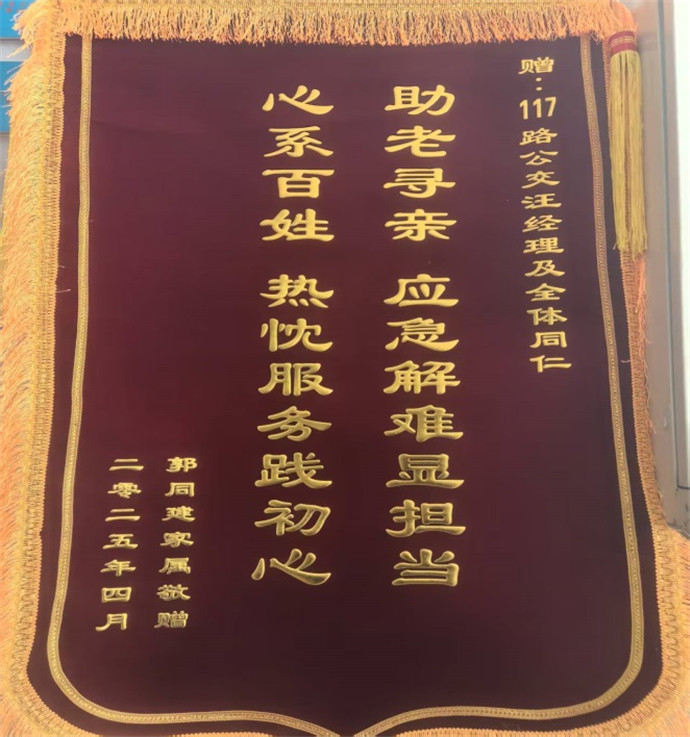 赠：117路公交汪经理及全体同仁
助老寻亲 应急解难显担当
心系百姓 热忱服务践初心
郭同建家属敬赠
二零二五年四月